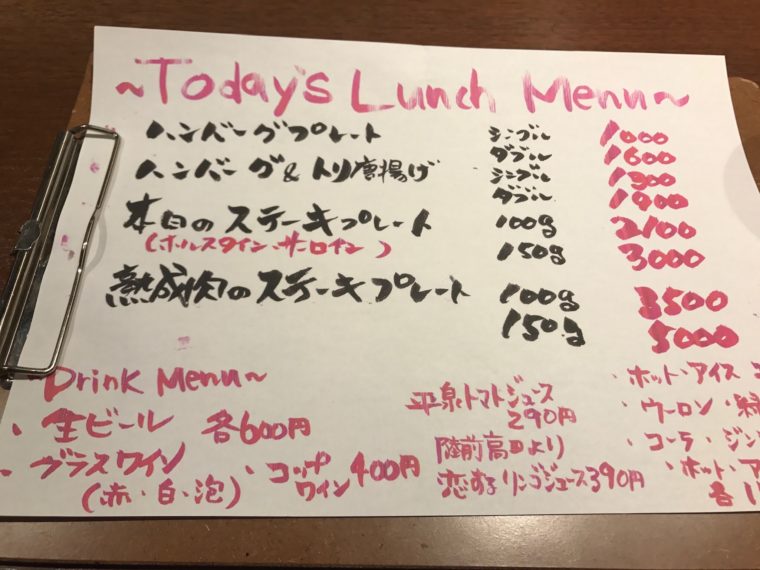 ~Today's Lunch Menu~
ハンバーグプレート シングル 1000
ダブル 1600
ハンバーグ&トリ唐揚げ シングル 1300
ダブル 1900
本日のステーキプレート 100g 2100
(ホルスタイン・サーロイン) 150g 3000
熟成肉のステーキプレート 100g 3500
150g 5000
Drink Menu~
・生ビール 各600円
・グラスワイン
(赤・白・泡)
・コップワイン 400円
平泉トマトジュース
290円
陸前高田より
恋するリンゴジュース390円
・ホット・アイス
・ウーロン・緑
・コーラ・ジン
・ホット・ア
各1